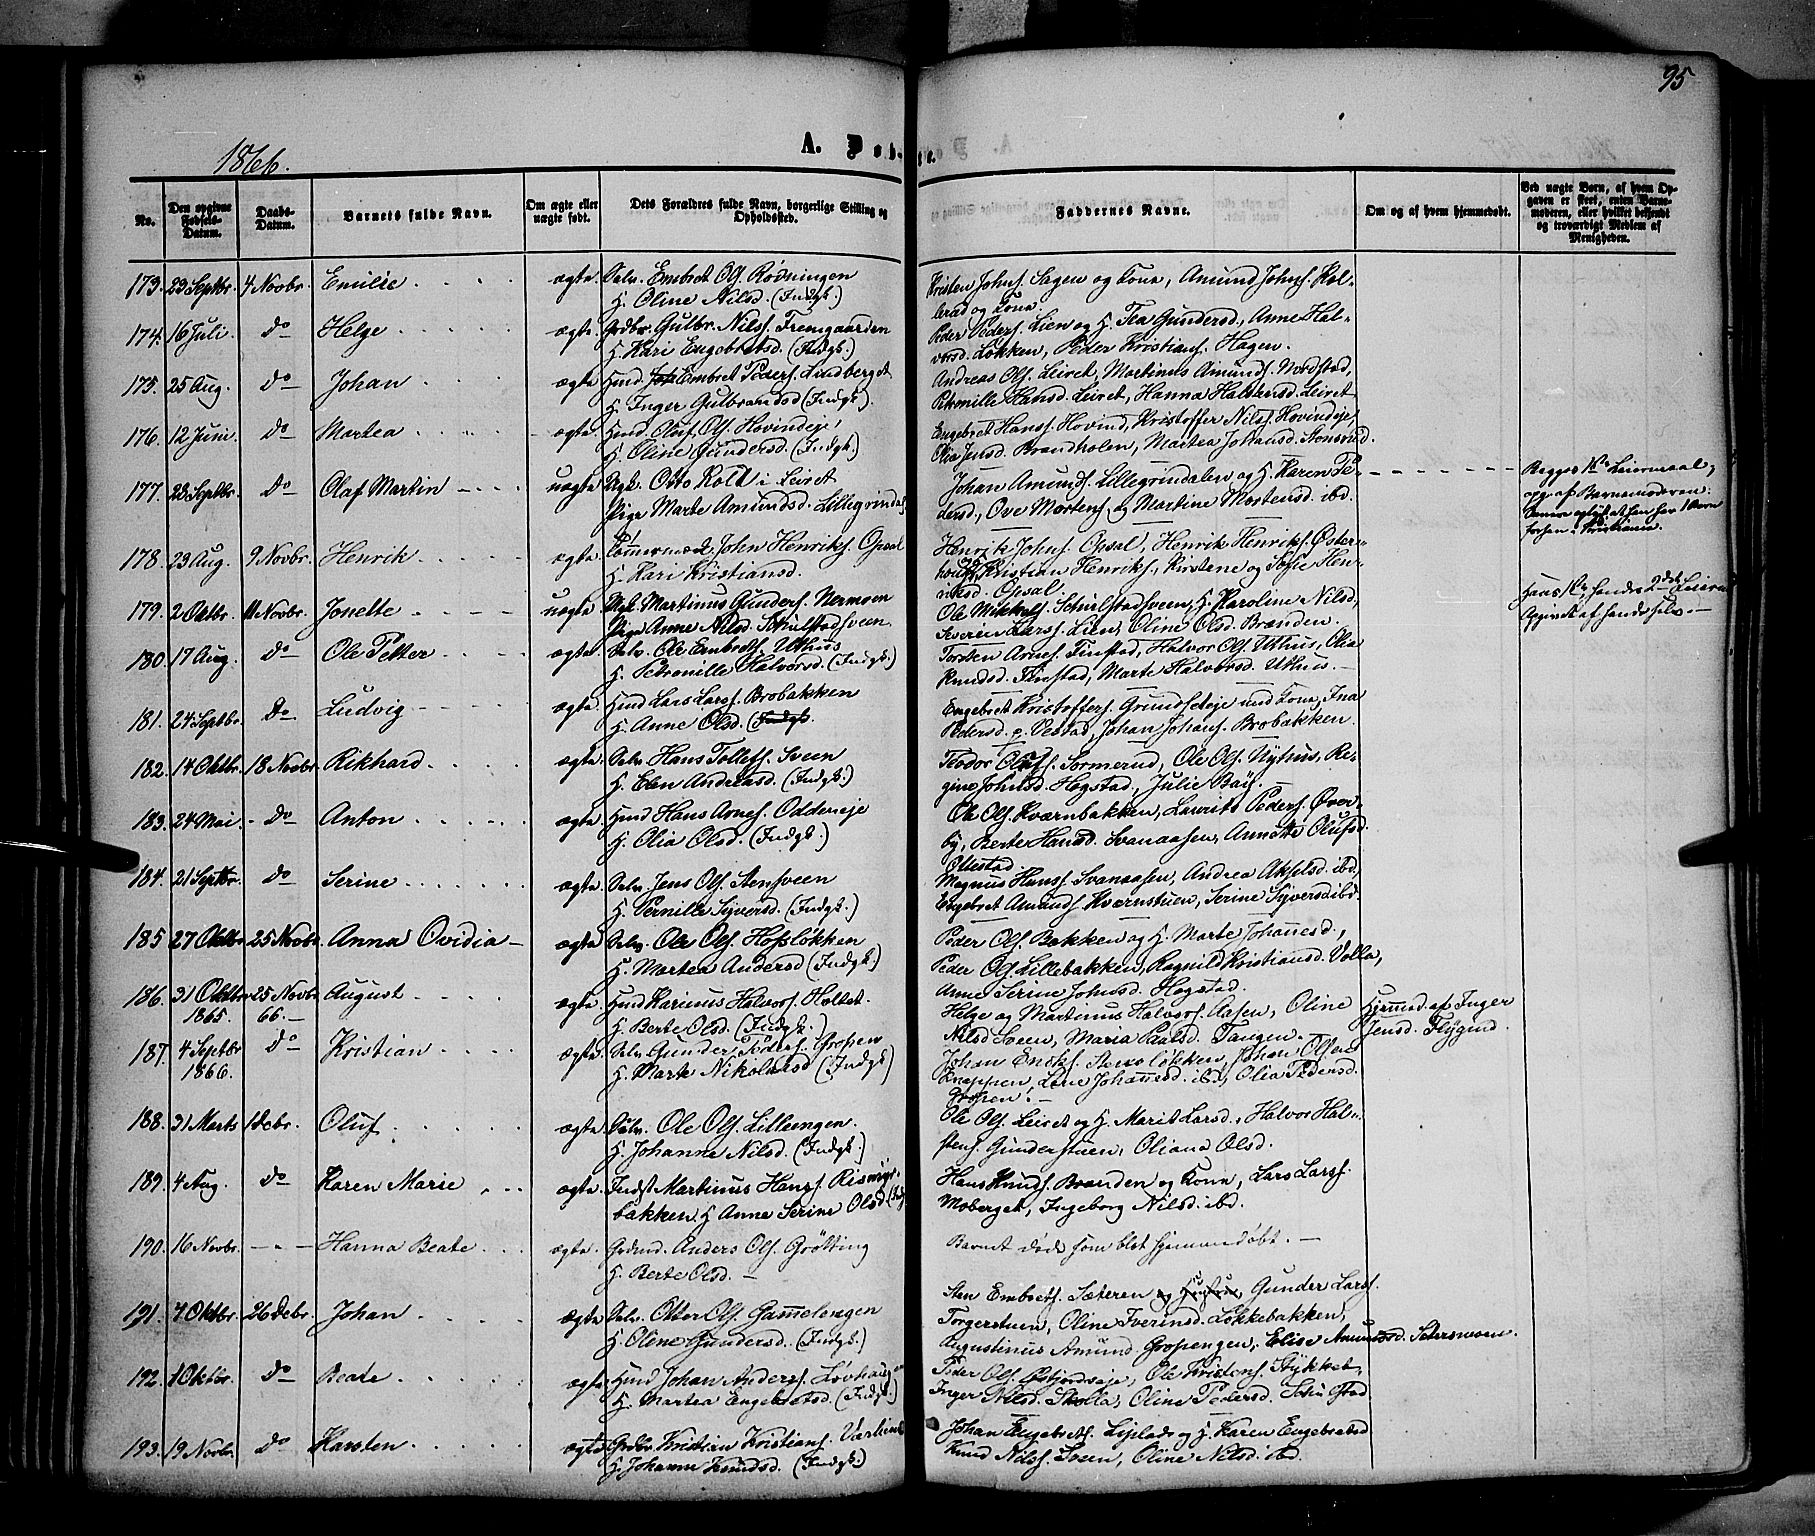 95
1866.
A. Fødte.
No.
Den opgivne Fødsels-Datum.
Daabs-Datum.
Barnets fulde Navn.
Om ægte eller uægte født.
Dets Forældres fulde Navn, borgerlige Stilling og Opholdssted.
Faddernes Navne.
Om og af hvem hjemmedøbt.
Ved uægte Børn, af hvem Opgaven er skeet, enten Barnemoderen, eller hvilket bekjendt og troværdigt Medlem af Menigheden.
173. 23 Septbr. 4 Novbr. Emilie ægte. Selv. Embret Ols. Rødningen
H. Oline Nilsd. (Indgk.)
Kristen Johns. Sagen og Kona, Amund Johns. Kol-
lerud og Kona
174. 16 Juli. do Helge ægte. Grdbr. Gulbr. Nilss. Fremgaarden
H. Kari Engebretsd. (Indgk.)
Peder Peders. Lien og H. Tea Gundersd., Anne Hal-
vorsd. Løkken, Peder Kristians. Hagen.
175. 25 Aug. do Johan ægte. Hmd. Embret Peders. Lundberget
H. Inger Gulbrandsd (Indgk).
Andreas Ols. Leiret, Martinus Amunds. Nordstad,
Petronille Hansd. Leiret, Hanna Halstensd. Leiret
176. 12 Juni. do Martea ægte. Hmd. Oluf Ols. Hovindeje,
H. Oline Gundersd. (Indgk.)
Engebret Hanss. Hovind, Kristoffer Nilss. Hovindeje,
Olia Jensd. Brandholen, Martea Johansd. Stensrud.
177. 23 Septbr. do Olaf Martin uægte. Ugk. Otto Rold i Leiret
Pige Marte Amundsd. Lillegrindal
Johan Amunds. Lillegrindalen og H. Karen Pe-
dersd., Ove Mortens. og Martine Mortensd. ibd.
Begges 1ste Leiermaal,
opg. af Barnemoderen.
178. 23 Aug. 9 Novbr. Henrik ægte. John Henriks. Opsal
H. Kari Kristiansd.
Henrik Johns. Opsal, Henrik Henriks. Øster-
haug, Kristian Henriks., Kirstene og Sofie Hen-
riksd. Opsal.
179. 2 Oktbr. 11 Novbr. Jonette uægte Ugk. Martinus Gunders. Nermoen
Pige Anne Nilsd. Schulstadsveen
Ole Mikkels. Schulstadsveen, H. Karoline Nilsd,
Severin Larss. Lien, Oline Olsd. Brænden.
Hans 1ste hendes 2det Leierm.
Opgivet af hende selv.
180. 17 Aug. do Ole Petter ægte. Selv. Ole Embrets. Uthus
H. Petronille Halvorsd. (Indgk.)
Torsten Arnes. Finstad, Halvor Ols. Uthus, Olia
Knudsd. Finstad, Marte Halvorsd. Uthus.
181. 24 Septbr. do Ludvig ægte. Hmd Lars Larss. Brobakken
H. Anne Olsd. (Indgk.
Engebret Kristoffers. Grundseteje med Kona, Ina
Pedersd. p. Vestad, Johan Johans. Brobakken.
182. 14 Oktbr. 18 Novbr. Rikhard ægte. Selv. Hans Tollefs. Sveen
H. Elen Andreasd. (Indgk.)
Teodor Olufs. Sormerud, Ole Ols. Nythus, Re-
gine Johnsd. Hogstad, Julie Bay.
183. 24 Mai. do Anton ægte. Hmd Hans Arnes. Oddeneje
H. Olia Olsd. (Indgk.)
Ole Ols. Kværnbakken, Laurits Peders. Øver-
by, Berte Hansd. Svanaasen, Annette Olufsd.
Ollestad
184. 21 Septbr. do Serine ægte. Selv. Jens Ols. Stensveen
H. Pernille Syversd. (Indgk.)
Magnus Hanss. Svanaasen, Andrea Akselsd. ibd,
Engebret Amunds. Kværnstuen, Serine Syversd ibd.
185 27 Oktbr. 25 Novbr. Anna Ovidia ægte. Selv. Ole Ols. Hofsløkken
H. Martea Andersd (Indgk.)
Peder Ols. Bakken og H. Marte Johannesd.,
Peder Ols. Lillebakken, Ragnild Kristiansd. Volla,
Anne Serine Johnsd. Hogstad.
186. 31 Oktbr 1865. 25 Novbr 66. August ægte. Hmd Karinus Halvors. Holtet.
H. Berte Olsd. (Indgk.)
Helge og Martinus Halvors. Aasen, Oline
Nilsd Sveen, Maria Paalsd. Tangen.
Hjemmed. af Inger
Jensd. Flygind.
187. 4 Septbr 1866. do Kristian ægte. Selv. Gunder Peders. Gropen
H. Marte Nikolaisd (Indgk)
Johan Encks. Stensløkken, Johan Olsen
Knappen, Lene Johannesd. ibd, Olia Pedersd.
Gropen.
188. 31 Marts 1 Debr. Oluf. ægte. Selv. Ole Ols. Lilleengen.
H. Johanne Nilsd. (Indgk.)
Ole Ols. Leiret og H. Marit Larsd., Halvor Hal-
stens. Gunderstuen, Oliana Olsd.
189. 4 Aug. do Karen Marie ægte. Indst Martinus Hanss. Risvig-
bakken H Anne Serine Olsd (Indg
Hans Knuds. Brænden og Kona, Lars Larss.
Moberget, Ingeborg Nilsd. ibd.
190. 16 Novbr. Hanna Beate ægte. Grdmd. Anders Ols. Grøtting
H. Berte Olsd.
Barnet døde som blot hjemmedøbt.
191. 4 Oktbr. 26 Debr. Johan ægte. Selv. Otter Ols. Gammelengen
H. Oline Gundersd. (Indgk.)
Sten Embrets. Sæteren og Hustru, Gunder Larss.
Torgerstuen, Oline Iverinsd. Løkkebakken,
Augustinus Amund. Gropengen, Elise Amundsd. Setersmoen.
192. 1 Oktbr. do Beate ægte. Hmd Johan Anderss. Løvhaugen
H. Martea Engebretsd. (Indgk.)
Peder Ols. Østjordseje, Ole Kristens. Stykket,
Inger Nilsd. Skolla, Oline Pedersd. Schulstad
193. 19 Novbr. do Karsten ægte Grdbr Kristian Kristians. Vestlund
H. Johanne Knudsd. (Indgk.)
Johan Engebrets. Liplads og H. Karen Engebretsd
Knud Nilss. Sveen, Oline Nilsd. ibd.